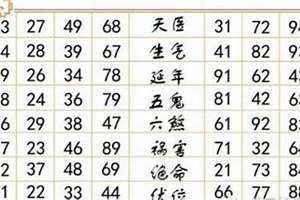 3 27 49 68 天医 31 72 9
4 28 39 67 生气 41 82 9
9 26 34 78 延年 91 62 4
8 24 36 79 五鬼 81 42 6
6 29 38 47 六煞 61 92 8
7 23 46 89 祸害 71 32 6
2 37 48 69 绝命 21 73 8
1 22 33 44 伏位 66 77 8